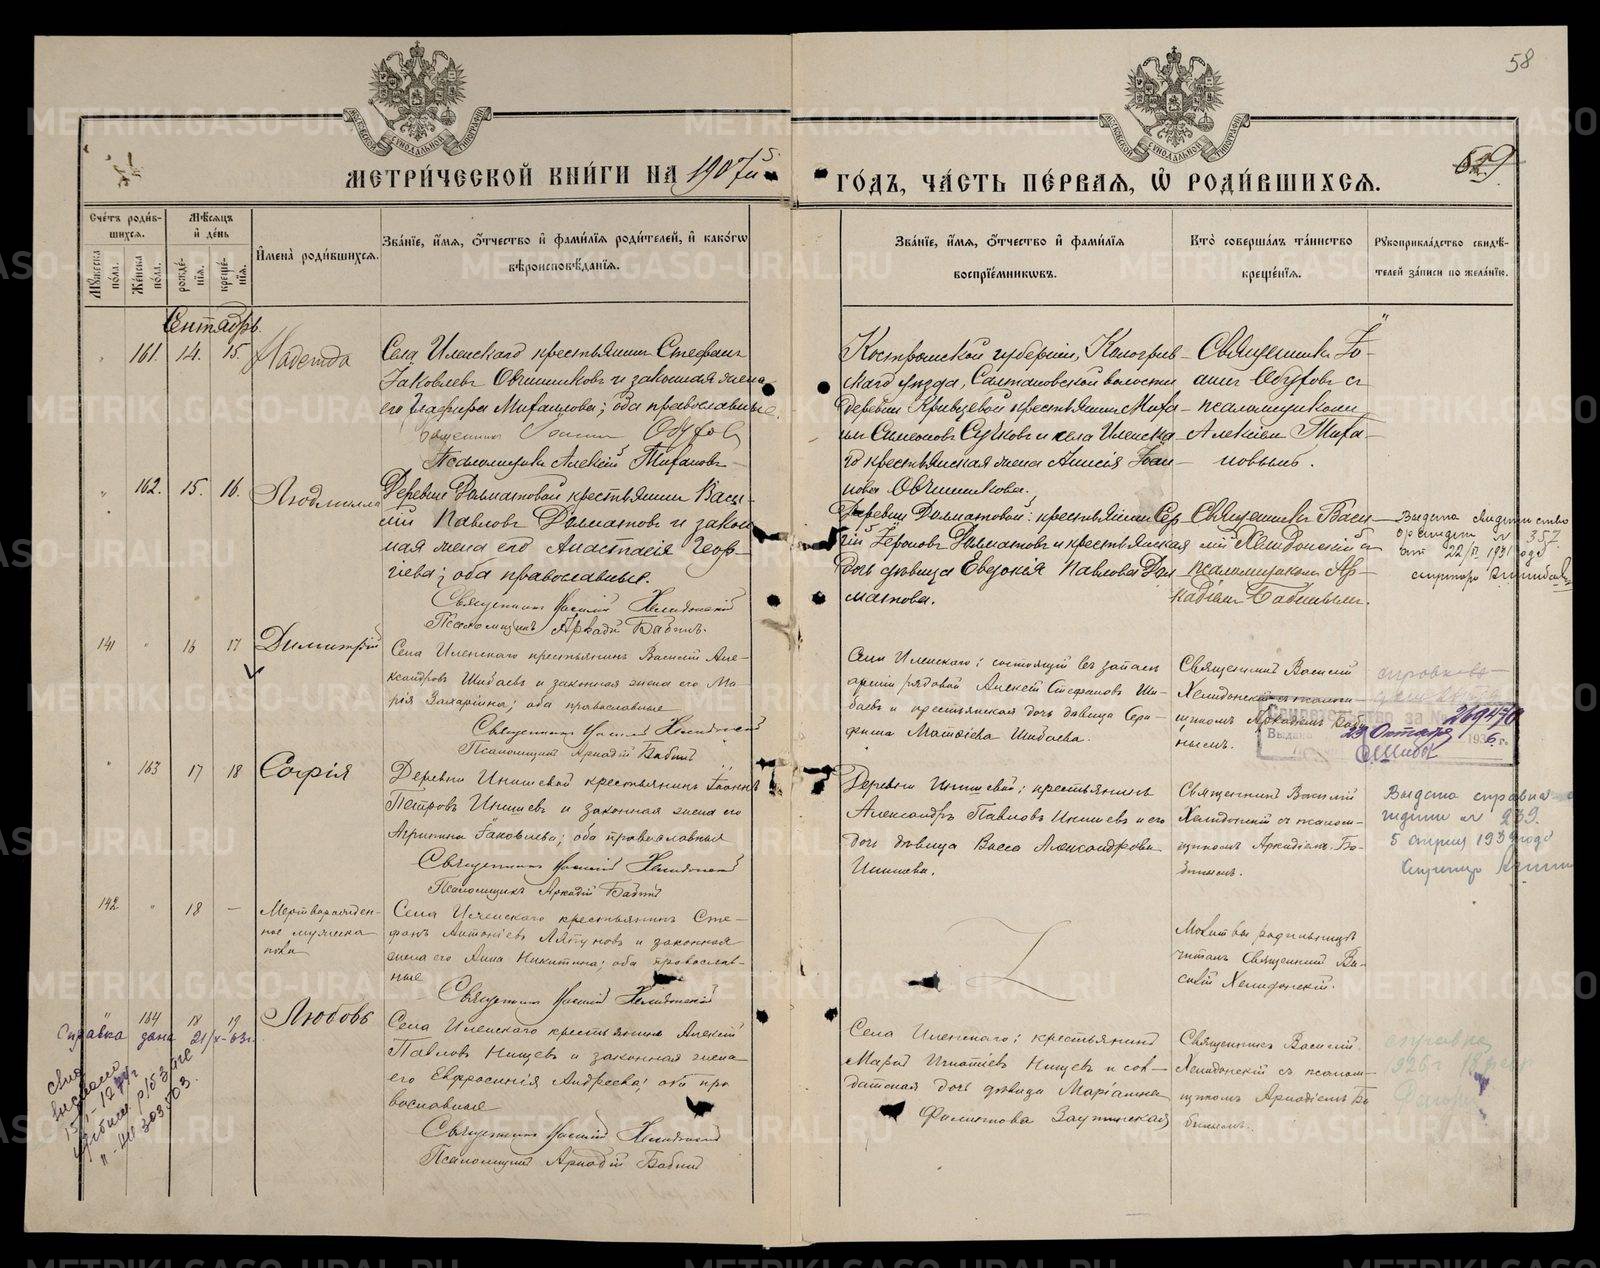 58
МЕТРИ́ЧЕСКОЙ КНИ́ГИ НА 1907й
ГО́ДЪ, ЧА́СТЬ ПЕ́РВАѦ, Ѽ РОДИ́ВШИХСѦ.
Сче́тъ роди́в-
шихсѧ.
Мѣ́сѧцъ
и҆ де́нь
Мꙋ́жеска
по́ла.
Же́нска
по́ла.
рожде́-
нїѧ.
креще́-
нїѧ.
И҆мена̀ роди́вшихсѧ.
Зва́нїе, и҆́мѧ, ѻ҆́тчество и҆ фами́лїѧ роди́телей, и҆ како́гѡ
вѣроисповѣ́данїѧ.
Зва́нїе, и҆́мѧ, ѻ҆́тчество и҆ фами́лїѧ
воспрїе́мникѡвъ.
Кто̀ соверша́лъ та́инство
креще́нїѧ.
Рꙋкоприкла́дство свидѣ́-
телей за́писи по жела́нїю.
Сентябрь.
161. 14. 15. Надежда
Села Иленскаго крестьянинъ Стефанъ
Іаковлевъ Овчинниковъ и законная жена
его Глафира Михаилова; оба православные.
Священникъ Іоаннъ Обуховъ
Псаломщикъ Алексій Тихановъ
Костромской губерніи, Кологрив-
скаго уѣзда, Салтановской волости
деревни Кривцевой крестьянинъ Миха-
илъ Симеоновъ Сучковъ и села Иленска-
го крестьянская жена Анисія Іоан-
нова Овчинникова.
Священникъ Іо-
аннъ Обуховъ съ
псаломщикомъ
Алексіемъ Тиха-
новымъ.
162. 15. 16. Людмила
Деревни Долматовой крестьянинъ Васи-
лій Павловъ Долматовъ и закон-
ная жена его Анастасія Геор-
гіева; оба православные.
Священникъ Василій Хелидонскій
Псаломщикъ Аркадій Бабинъ.
Деревни Долматовой: крестьянинъ Сер-
гій Іероновъ Долматовъ и крестьянская
дочь дѣвица Евдокія Павлова Дол-
матова.
Священникъ Васи-
лій Хелидонскій съ
псаломщикомъ Ар-
кадіемъ Бабинымъ.
Выдано свидетельство
о рождении № 357.
от 22/II 1931 года
141 " 16 17 Димитрій
Села Иленскаго крестьянинъ Василій Але-
ксандровъ Шибаевъ и законная жена его Ма-
рія Захаріина; оба православные
Священникъ Василій Хелидонскій
Псаломщикъ Аркадій Бабинъ
Села Иленскаго: состоящій въ запасѣ
арміи рядовой Алексій Стефановъ Ши-
баевъ и крестьянская дочь дѣвица Сера-
фима Матѳіева Шибаева.
Священникъ Василій
Хелидонскій съ псалом-
щикомъ Аркадіемъ Баби-
нымъ.
Свидетельство за № 269470
Выдано 23 Октября 1936 г.
" 163 17 18 Софія
Деревни Инишевой крестьянинъ Іоаннъ
Петровъ Инишевъ и законная жена его
Агрипина Іаковлева; оба православные
Священникъ Василій Хелидонскій
Псаломщикъ Аркадій Бабинъ
Деревни Инишевой; крестьянинъ
Александръ Павловъ Инишевъ и его
дочь дѣвица Васса Александрова
Инишева.
Священникъ Василій
Хелидонскій съ псалом-
щикомъ Аркадіемъ Ба-
бинымъ.
Выдана справка о
рождении № 239.
5 апреля 1939 года
142 " 18 — Мертворожден-
ное мужеска
пола
Села Иленскаго крестьянинъ Сте-
фанъ Антоніевъ Ляпуновъ и законная
жена его Анна Никитина; оба православ-
ные
Священникъ Василій Хелидонскій
Молитвы родильницѣ
читалъ Священникъ Ва-
силій Хелидонскій.
164 18 19 Любовь
Села Иленскаго крестьянинъ Алексій
Павловъ Нищевъ и законная жена
его Евфросинія Андреева; оба пра-
вославные
Священникъ Василій Хелидонскій
Псаломщикъ Аркадій Бабинъ
Села Иленскаго; крестьянинъ
Марой Игнатіевъ Нищевъ и сол-
датская дочь дѣвица Маріамна
Филипова Заутинская
Священникъ Василій
Хелидонскій съ псалом-
щикомъ Аркадіемъ Ба-
бинымъ.
справка
Справка дана 21/X-63г.
METRIKI.GASO-URAL.RU